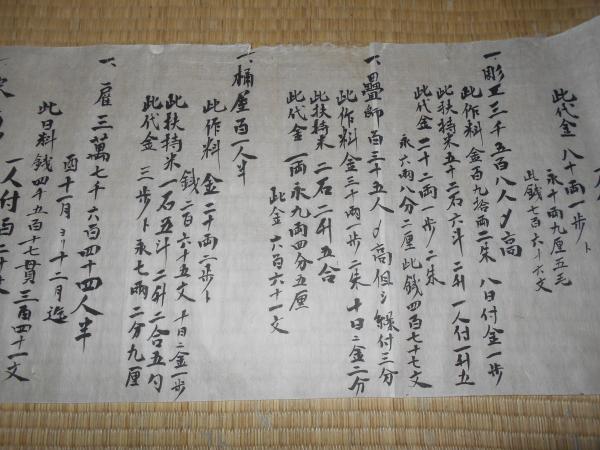 此代金 八十両一歩ト
永十両九厘五毛
此銭七百六十六文
一、彫工三千五百八人〆高
此作料 金百九拾両二朱 八日付金一歩
此扶持米五十二石六斗二升 一人付一升五
此代金二十二両一歩二朱
永六両八分二厘 此銭四百七十七文
一、畳師百三十五人〆高但シ縁付三分
此作料金三十両一歩二朱 十日ニ金二分
此扶持米 二石二升五合
此代金一両永九両四分五厘
此金六百六十一文
一、桶屋百一人半
此作料 金二十両二歩ト
銭二百六十五文 十日ニ金一歩
此扶持米 一石五斗二升二合五勺
此代金三歩ト永七両二分九厘
一、雇三萬七千六百四十四人半
酉十一月ヨリ十二月迄
此日料銭四千五百十七貫三百四十一文
一人付百二十文